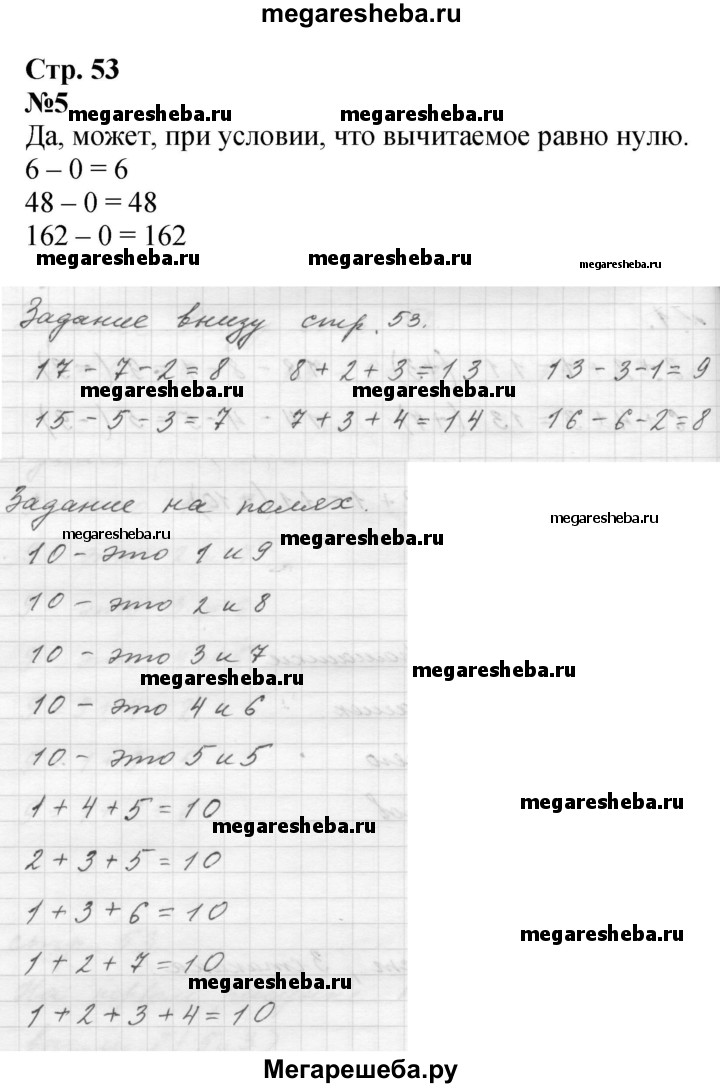 megaresheba.ru
Стр. 53
№5
megaresheba.ru megaresheba.ru
Да, может, при условии, что вычитаемое равно нулю.
6 – 0 = 6
48 – 0 = 48
162 – 0 = 162
megaresheba.ru megaresheba.ru megaresheba.ru
Задание внизу стр. 53.
17 - 7 - 2 = 8 8 + 2 + 3 = 13 13 - 3 - 1 = 9
megaresheba.ru megaresheba.ru
15 - 5 - 3 = 7 7 + 3 + 4 = 14 16 - 6 - 2 = 8
Задание на полях.
megaresheba.ru megaresheba.ru megaresheba.ru
10 - это 1 и 9
10 - это 2 и 8
10 - это 3 и 7
megaresheba.ru megaresheba.ru
10 - это 4 и 6
10 - это 5 и 5
1 + 4 + 5 = 10
megaresheba.ru megaresheba.ru
2 + 3 + 5 = 10
1 + 3 + 6 = 10
megaresheba.ru
1 + 2 + 7 = 10
megaresheba.ru megaresheba.ru
1 + 2 + 3 + 4 = 10
Мегарешеба.ру